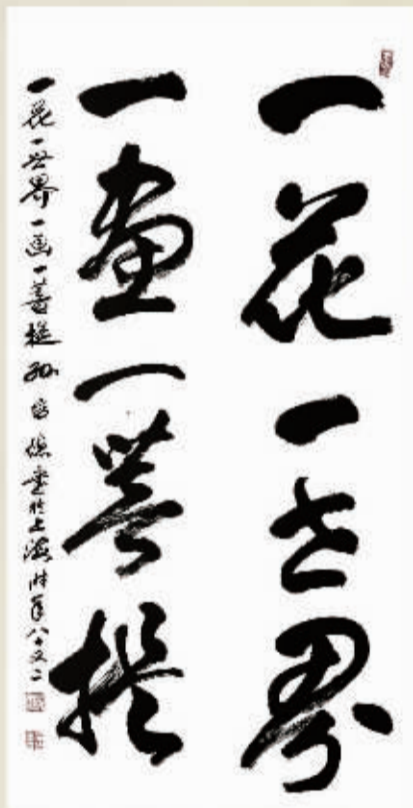 一花一世界
一畫一菩提
一花一世界一画一菩提 孙 書於上海时年八十又二